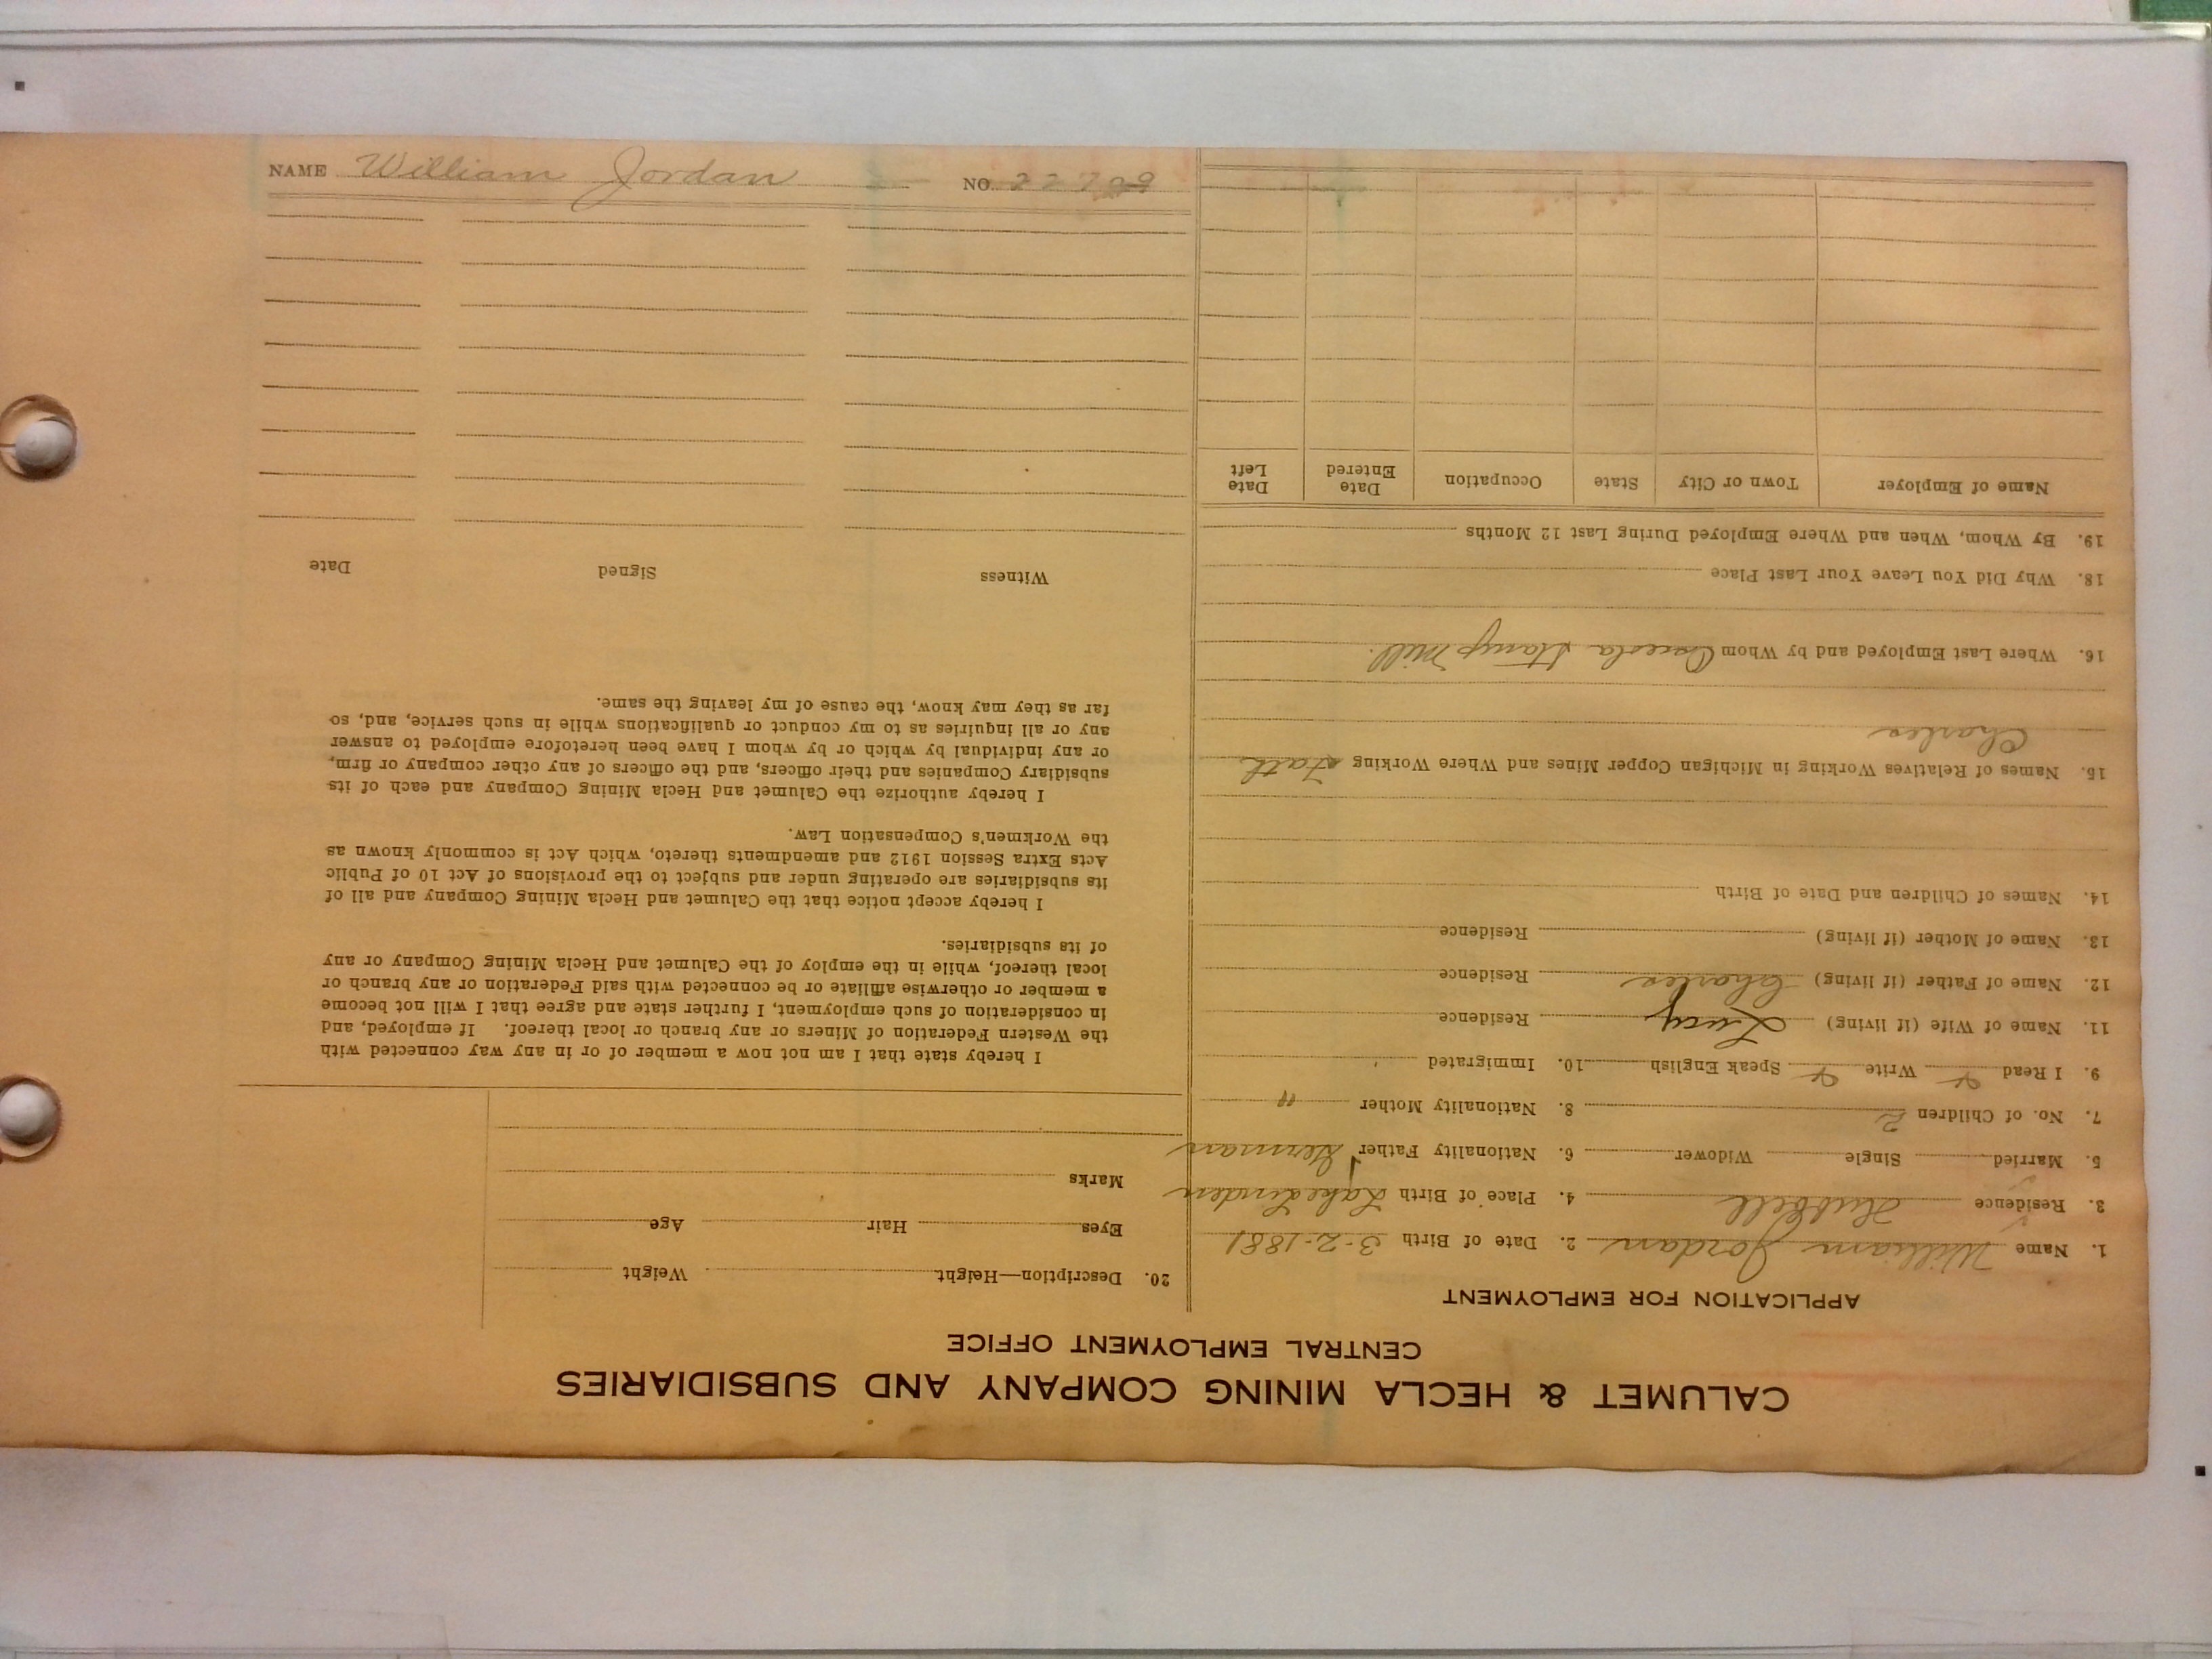 CALUMET & HECLA MINING COMPANY AND SUBSIDIARIES
CENTRAL EMPLOYMENT OFFICE
APPLICATION FOR EMPLOYMENT
1. Name William Jordan 2. Date of Birth 3-2-1881
3. Residence Hubbell 4. Place of Birth Lake Linden
5. Married Single Widower 6. Nationality Father German
7. No. of Children 2 8. Nationality Mother "
9. I Read Write Speak English 10. Immigrated
11. Name of Wife (if living) Lucy Residence
12. Name of Father (if living) Charles Residence
13. Name of Mother (if living) Residence
14. Names of Children and Date of Birth
15. Names of Relatives Working in Michigan Copper Mines and Where Working Fath
Charles
16. Where Last Employed and by Whom Osceola Stamp Mill.
18. Why Did You Leave Your Last Place
19. By Whom, When and Where Employed During Last 12 Months
Name of Employer Town or City State Occupation Date Entered Date Left
20. Description—Height Weight
Eyes Hair Age
Marks
I hereby state that I am not now a member of or in any way connected with
the Western Federation of Miners or any branch or local thereof. If employed, and
in consideration of such employment, I further state and agree that I will not become
a member or otherwise affiliate or be connected with said Federation or any branch or
local thereof, while in the employ of the Calumet and Hecla Mining Company or any
of its subsidiaries.
I hereby accept notice that the Calumet and Hecla Mining Company and all of
its subsidiaries are operating under and subject to the provisions of Act 10 of Public
Acts Extra Session 1912 and amendments thereto, which Act is commonly known as
the Workmen's Compensation Law.
I hereby authorize the Calumet and Hecla Mining Company and each of its
subsidiary Companies and their officers, and the officers of any other company or firm,
or any individual by which or by whom I have been heretofore employed to answer
any or all inquiries as to my conduct or qualifications while in such service, and, so
far as they may know, the cause of my leaving the same.
Witness Signed Date
NAME William Jordan NO.